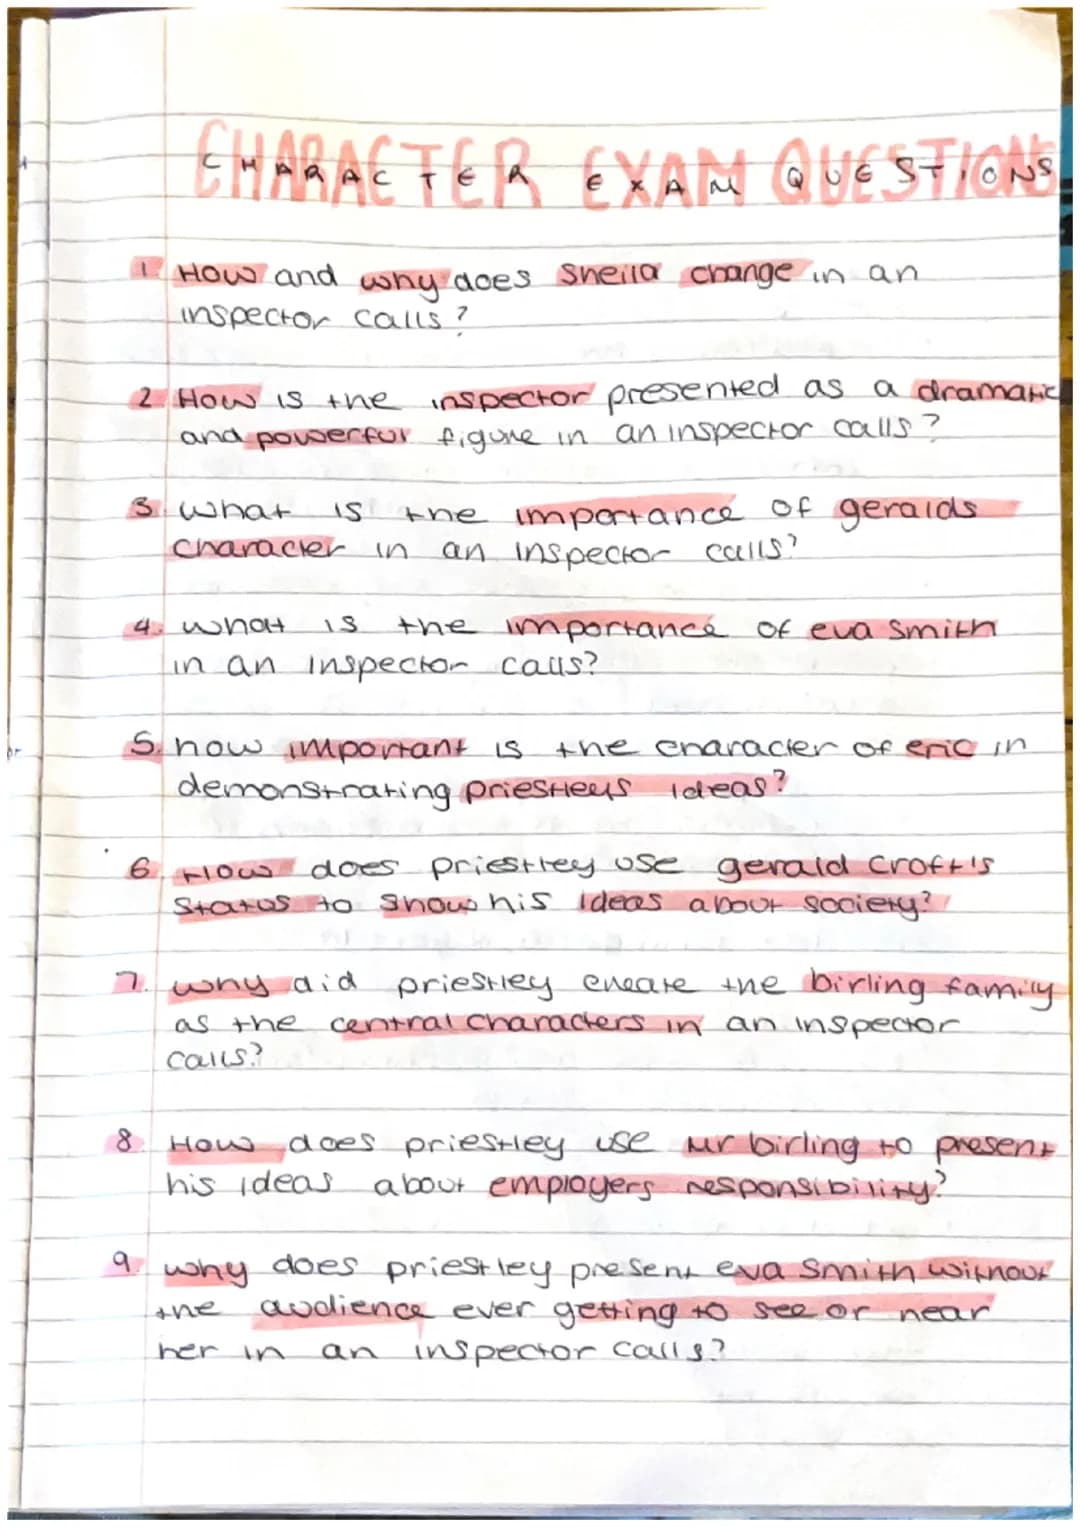 CHARACTER EXAM QUESTIONS
1. How and why does Sheila change in an
inspector calls?
2. How is the inspector presented as a dramatic
and powerful figure in an inspector calls?
3. what is the importance of geralds
character in an inspector calls?
4. what is the importance of eva smith
in an inspector calls?
5. how important is the character of eric in
demonstrating priestleys ideas?
6. How does priestley use gerald Croft's
status to show his ideas about society?
7. why did priestley create the birling family
as the central characters in an inspector
calls?
8. How does priestley use Mr birling to present
his ideas about employers responsibility?
9. why does priestley present eva smith without
the audience ever getting to see or near
her in an inspector calls?